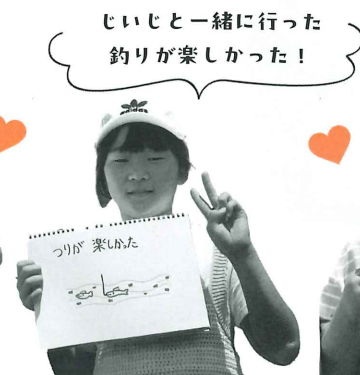 じいじと一緒に行った
釣りが楽しかった！
adidas
つりが 楽しかった